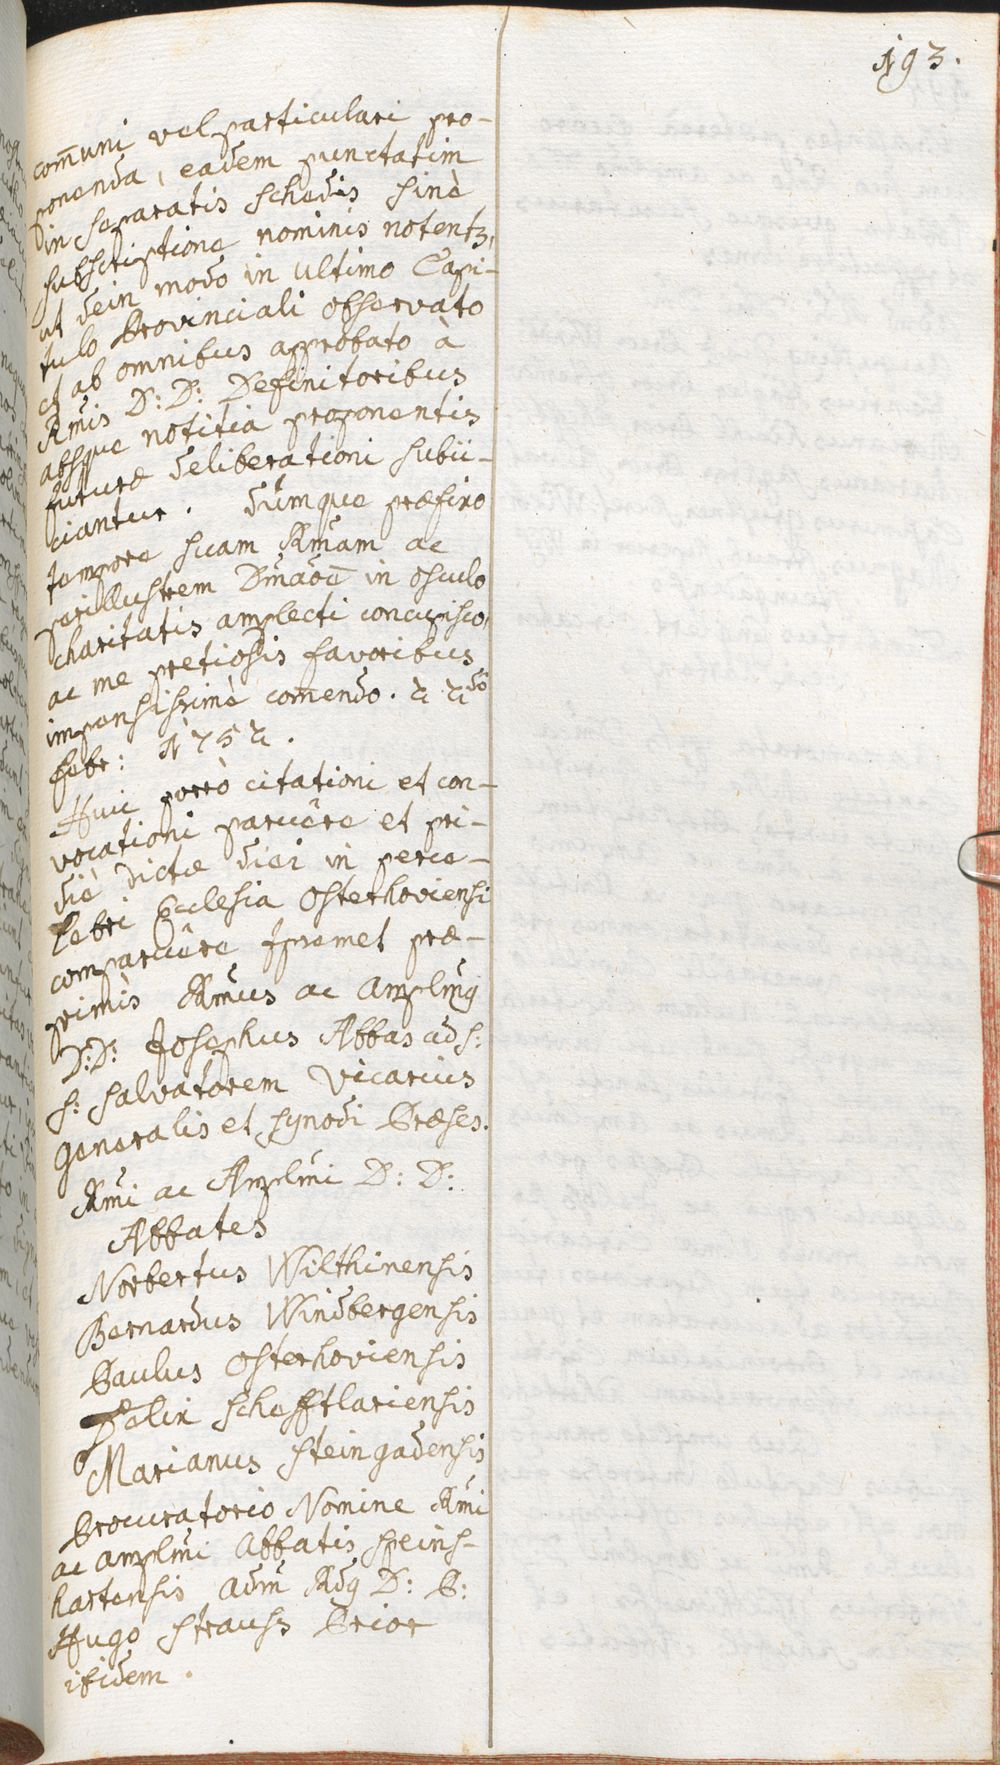 193.
com̄uni vel particulari pro-
ponenda, eadem punctatim
in separatis schedis sine
subscriptione nominis notentz,
ut dein modo in ultimo Capi-
tulo Provinciali observato
et ab omnibus approbato à
Rm̃is D: D: Definitoribus
absque notitia proponentis
futuræ deliberationi subii-
ciantur. dumque præfixo
tempore suam Rm̃am ac
perillustrem Dm̃aõē in osculo
charitatis amplecti concupisco,
ac me pretiosis favoribus
impensissimè com̄endo. 2 2dô
febr: 1752.
Huic porrò citationi et con-
vocationi paruêre et pri-
diè dictæ diei in perce-
lebri Ecclesia Osterhoviensi
comparuêre Ipsemet præ-
primìs Rm̃us ac Amplm̃9
D:D: Josephus Abbas ad S:
S: Salvatorem Vicarius
Generalis et Synodi Præses.
Rm̃i ac Amplm̃i D: D:
Abbates
Norbertus Wilthinensis
Bernardus Windbergensis
Paulus Osterhoviensis
Felix Schefftlariensis
Marianus Steingadensis
Procuratorio Nomine Rm̃i
ac amplm̃i Abbatis Speins-
hartensis adm̃ Rd9 D: P:
Hugo Strauss Prior
ibidem.